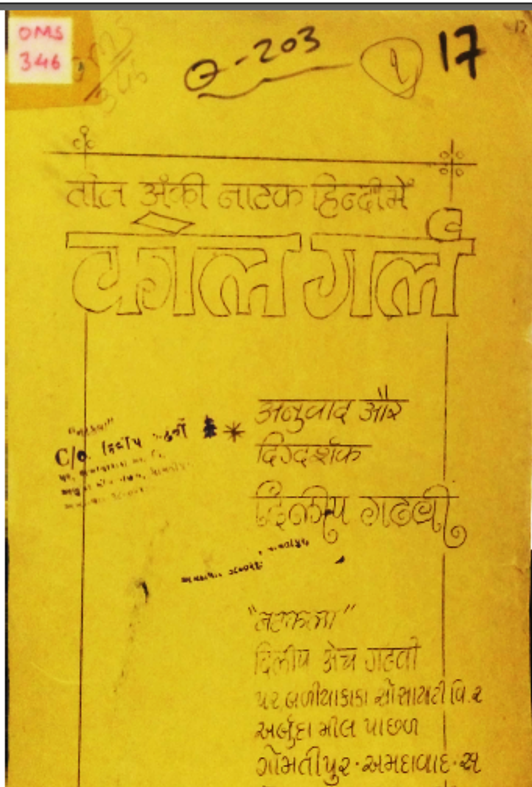 OMS
346
Q-203
૧
17
तीन अंकी नाटक हिन्दीमें
कोल गर्ल
अनुवाद और
दिग्दर्शक
दिलीप गढवी
C/o. દિલીપ ગઢવી
दिलीप अेच गढवी
૫૨, બળીયાકાકા સોસાયટી વિ.૨
અર્બુદા મીલ પાછળ
ગોમતીપુર · અમદાવાદ ·